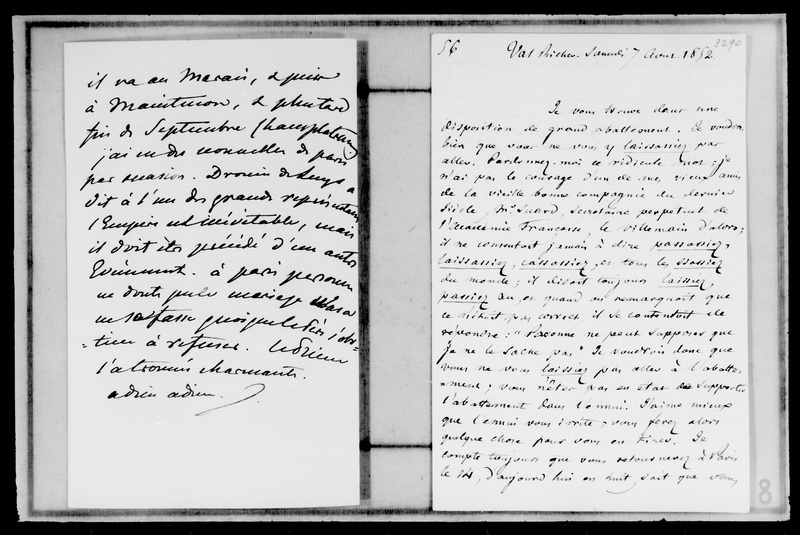 il va au Marais, & puis
à Maintenon, & plus tard
fin de Septembre Champlatreux
j'ai eu des nouvelles de paris
par occasion. Drouin de Lhuys a
dit à l'un des grands
l'Empire est inévitable, mais
il doit être précédé d'un autre
Evénement. à paris personne
ne doute que le mariage Wasa
ne se fasse quoique le père s'obs-
-tine à refuser.
l'a trouvée charmante.
adieu adieu.
56 Val Richer. Samedi 7 Aout 1852
3290
Je vous trouve dans une
disposition de grand abattement. Je voudrois
bien que vous ne vous y laissassiez pas
aller. Pardonnez-moi ce ridicule mot ; je
n'ai pas le courage d'un de mes vieux amis
de la vieille bonne compagnie du dernier
Siècle, Mr Suard, Secrétaire perpétuel de
l'Académie Française, le Villemain d'alors ;
il ne consentoit jamais à dire passassiez,
laissassiez, cassassiez, et tous les assiez
du monde ; il disoit toujours laissiez,
passiez &c, et quand on remarquoit que
ce n'étoit pas correct, il se contentoit de
répondre : "Personne ne peut supposer que
je ne le sache pas" Je voudrois donc que
vous ne vous laissiez pas aller à l'abatte-
-ment ; vous n'êtes pas en état de supporter
l'abattement dans l'ennui. J'aime mieux
que l'ennui vous irrite ; vous ferez alors
quelque chose pour vous en tirer. Je
compte toujours que vous retournerez à Paris
le 14, d'aujourd'hui en huit, soit que vous
8